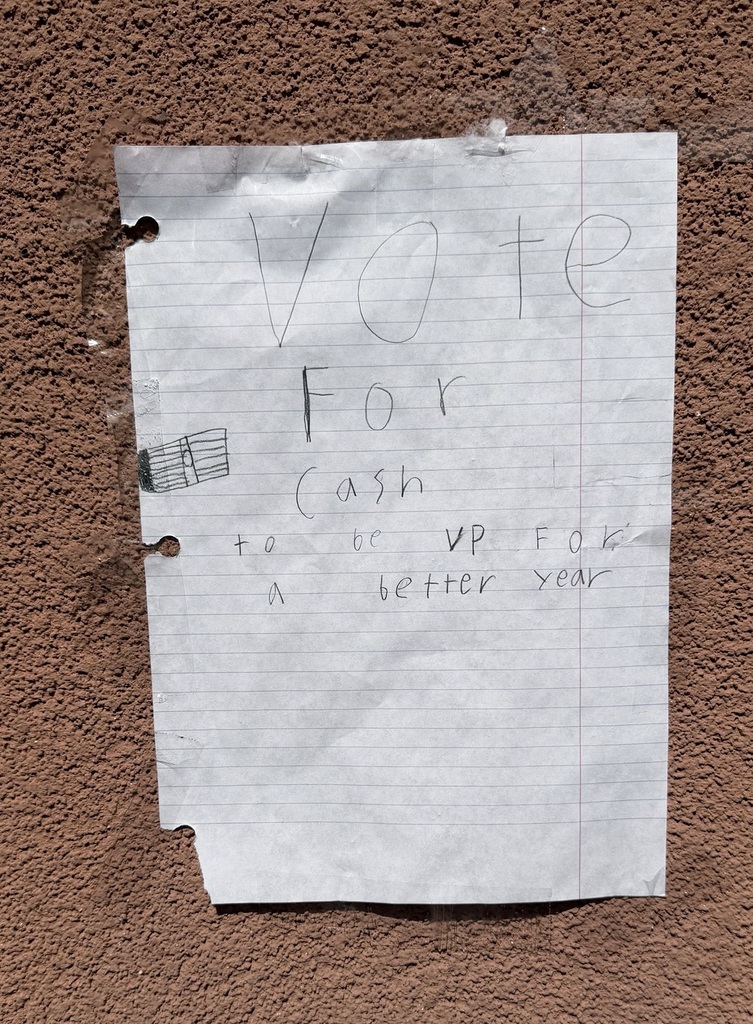 Vote
For
Cash
to be VP For
a better year